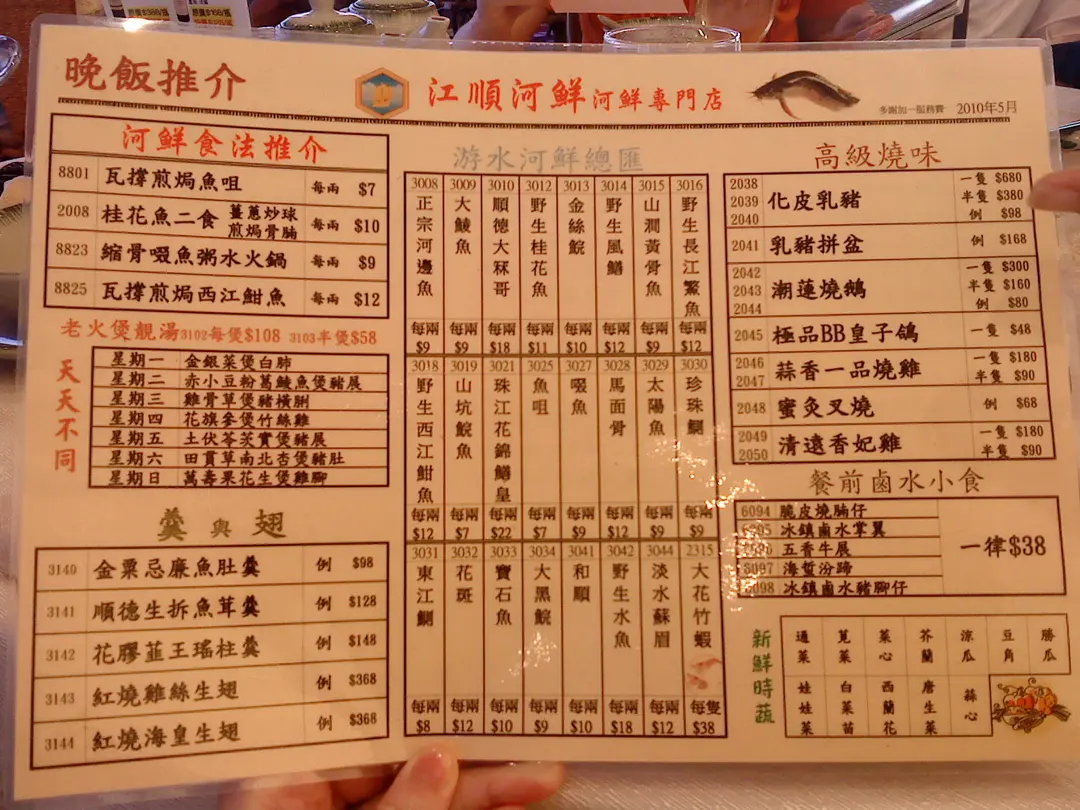 晚飯推介
江順河鮮 河鮮專門店
多謝加一服務費 2010年5月
河鮮食法推介
8801 瓦撐煎焗魚咀 每兩 $7
2008 桂花魚二食 薑蔥炒球 煎焗骨腩 每兩 $10
8823 縮骨啜魚粥水火鍋 每兩 $9
8825 瓦撐煎焗西江鮒魚 每兩 $12
老火煲靚湯 3102每煲$108 3103半煲$58
天天不同
星期一 金銀菜煲白肺
星期二 赤小豆粉葛鯪魚煲豬展
星期三 雞骨草煲豬橫脷
星期四 花旗參煲竹絲雞
星期五 土伏苓茨實煲豬展
星期六 田貫草南北杏煲豬肚
星期日 萬壽果花生煲雞腳
羹與翅
3140 金粟忌廉魚肚羹 例 $98
3141 順德生拆魚茸羹 例 $128
3142 花膠韮王瑤柱羹 例 $148
3143 紅燒雞絲生翅 例 $368
3144 紅燒海皇生翅 例 $368
游水河鮮總匯
3008 正宗河邊魚 每兩 $9
3009 大鯪魚 每兩 $9
3010 順德大冧哥 每兩 $18
3012 野生桂花魚 每兩 $11
3013 金絲鯇 每兩 $10
3014 野生風鱔 每兩 $12
3015 山澗黃骨魚 每兩 $9
3016 野生長江鱉魚 每兩 $12
3018 野生西江鮒魚 每兩 $12
3019 山坑鯇魚 每兩 $7
3021 珠江花錦鱔皇 每兩 $22
3025 魚咀 每兩 $7
3027 啜魚 每兩 $9
3028 馬面骨 每兩 $12
3029 太陽魚 每兩 $9
3030 珍珠鯛 每兩 $9
3031 東江鯛 每兩 $8
3032 花斑 每兩 $12
3033 寶石魚 每兩 $10
3034 大黑鯇 每兩 $9
3041 和順 每兩 $10
3042 野生水魚 每兩 $18
3044 淡水蘇眉 每兩 $12
2315 大花竹蝦 每隻 $38
高級燒味
2038 2039 2040 化皮乳豬 一隻 $680 半隻 $380 例 $98
2041 乳豬拼盆 例 $168
2042 2043 2044 潮蓮燒鵝 一隻 $300 半隻 $160 例 $80
2045 極品BB皇子鴿 一隻 $48
2046 2047 蒜香一品燒雞 一隻 $180 半隻 $90
2048 蜜灸叉燒 例 $68
2049 2050 清遠香妃雞 一隻 $180 半隻 $90
餐前鹵水小食
6094 脆皮燒腩仔
6095 冰鎮鹵水掌翼
五香牛展
6097 海蜇汾蹄
6098 冰鎮鹵水豬腳仔
一律$38
新鮮時蔬
通菜 莧菜 菜心 芥蘭 涼瓜 豆角 勝瓜
娃娃菜 白菜苗 西蘭花 唐生菜 蒜心